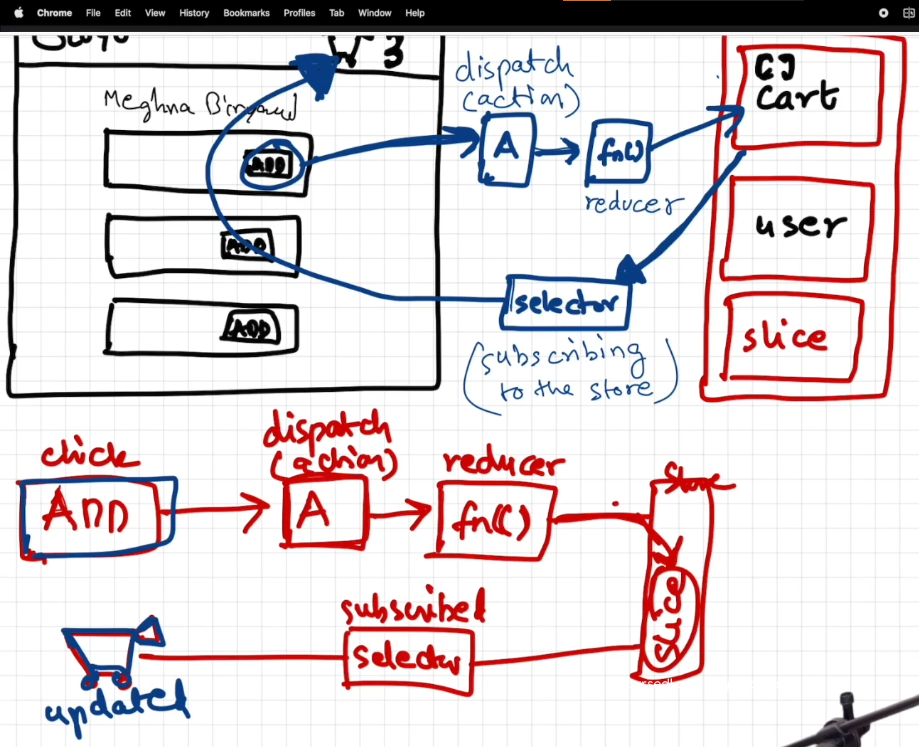 Chrome File Edit View History Bookmarks Profiles Tab Window Help
3
Meghna Biryani
ADD
ADD
ADD
dispatch
(action)
A
fn()
reducer
selector
(subscribing
to the store)
[]
cart
user
slice
click
ADD
dispatch
(action)
A
reducer
fn()
Store
slice
subscribed
selector
updated